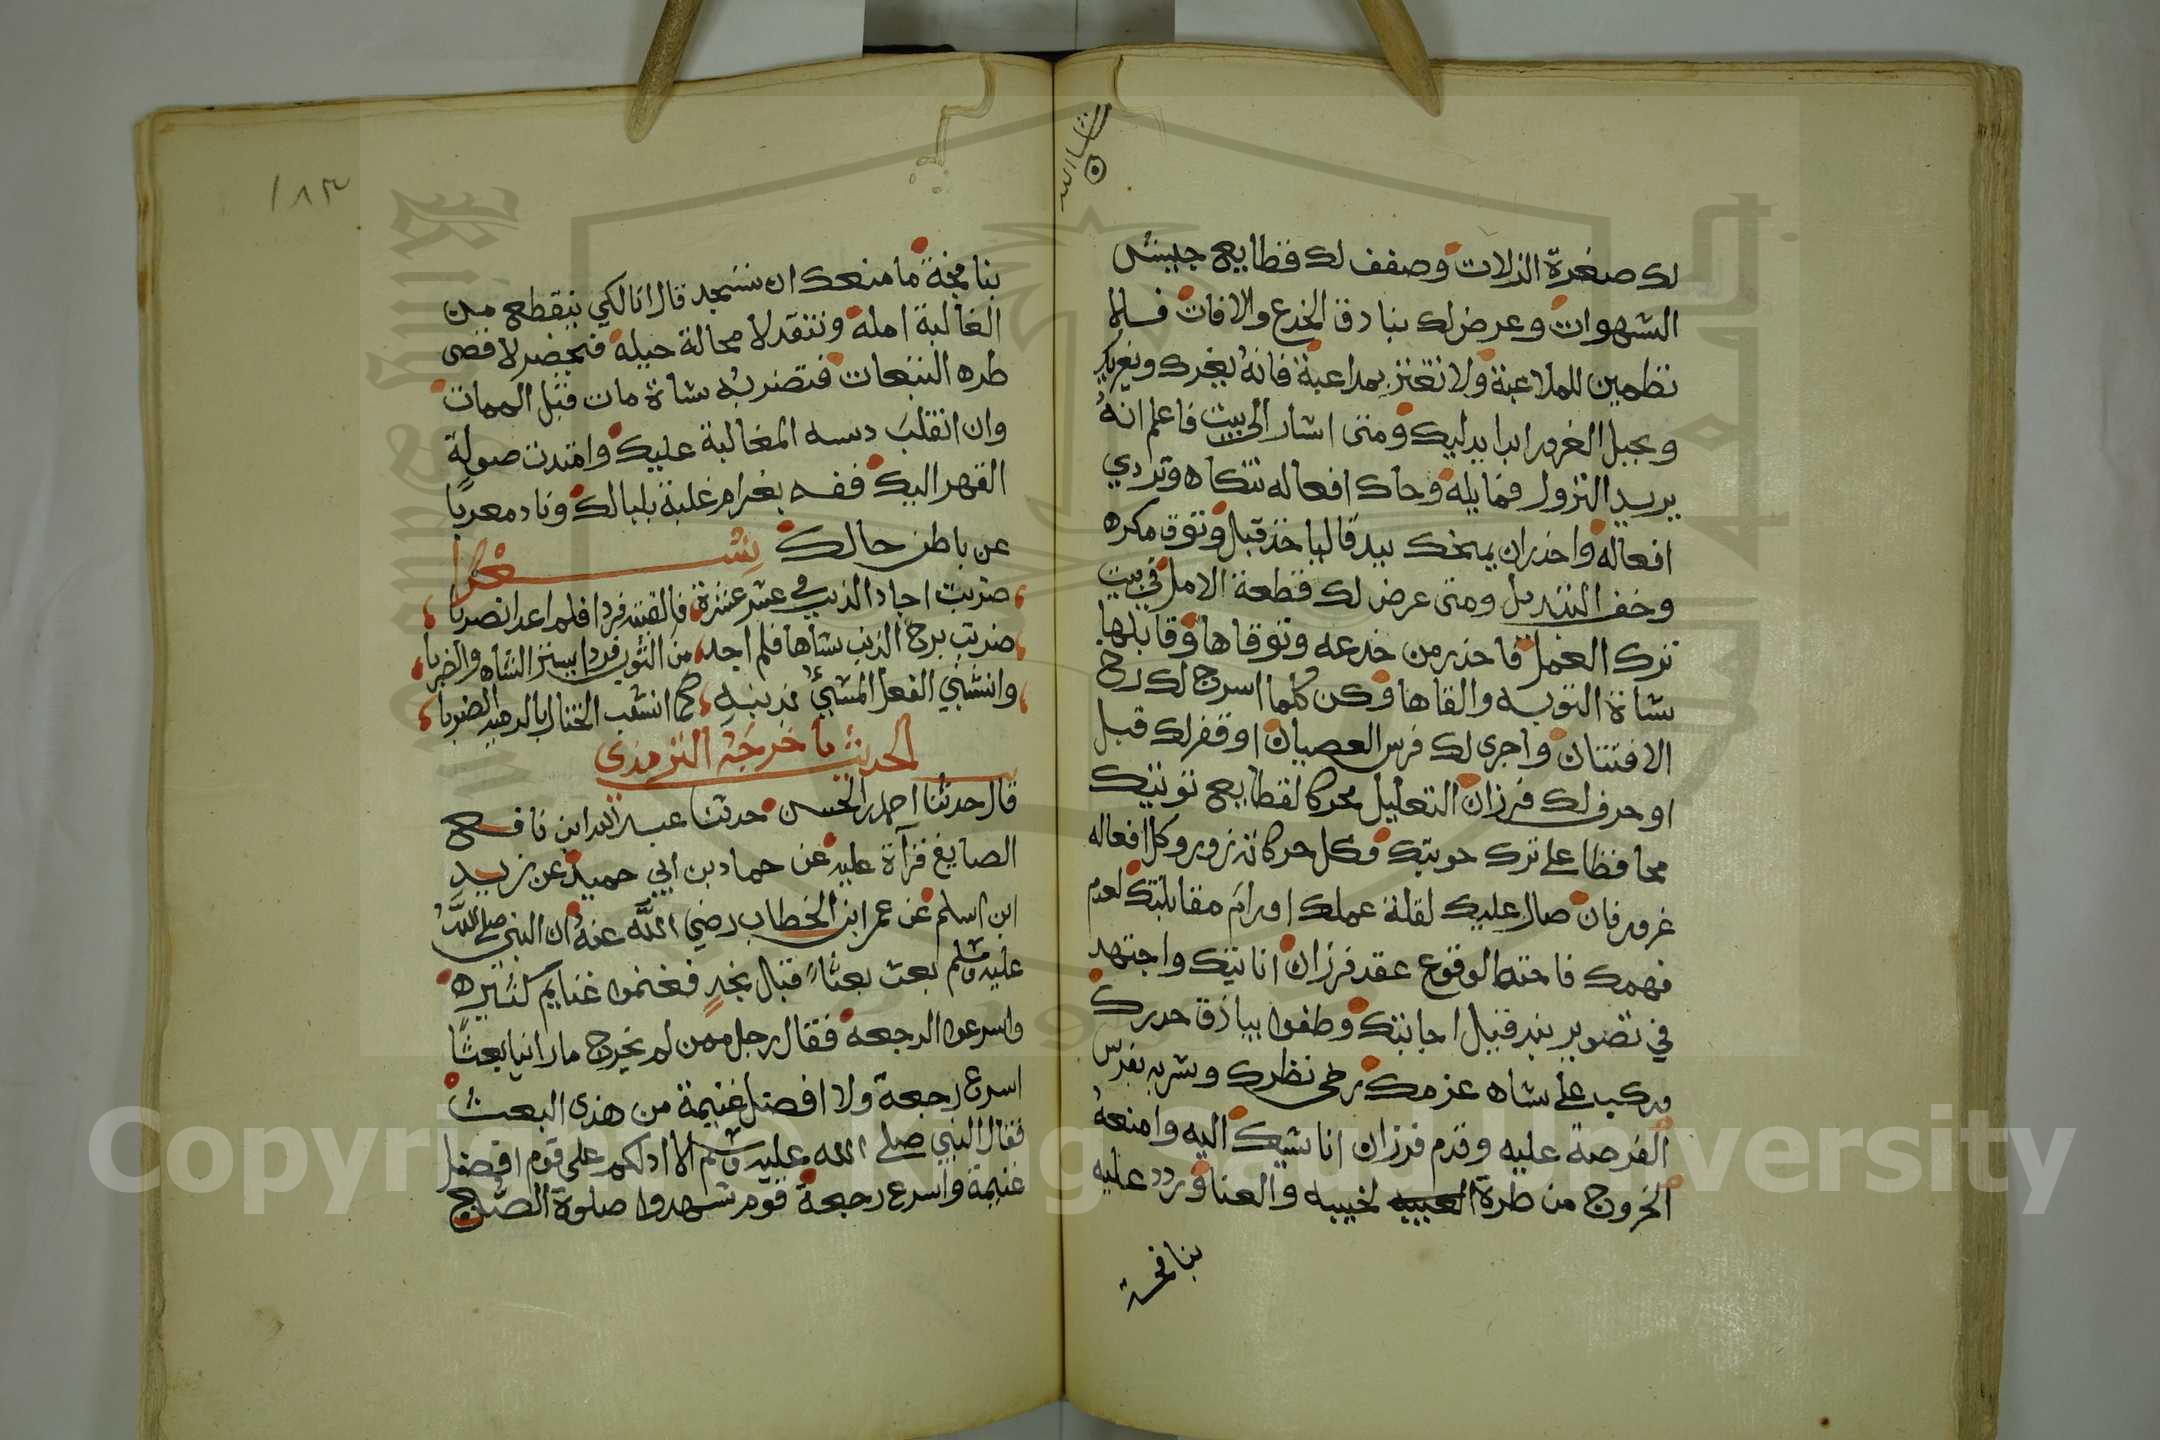 لك صغرة الزلات وصفف لك قطايع جيش
الشهوات وعرض لك بنادق الخدع والافات فـلا
تظمين للملاعبة ولا تغتر بمداعبة فانه يغرك وبغريك
وبحبل الغرور ابدا يدليك ومتى اشار الى بيت فاعلم انه
يريد النزول فمايله وحاك افعاله تتكاه وتردي
افعاله واحذر ان يمنحك بيدقا لياخذ قبال وتوق مكره
وخف التبديل ومتى عرض لك قطعة الامل في بيت
ترك العمل فاحذر من خدعه وتوقاها وقابلها
بشاة التوبه والقاها وكن كلما اسرج لك رخ
الافتتان واجرى لك فرس العصيان اوقفر لك قبل
او حرف لك فرزان التعليل محركا لقطايع توبتك
محافظا على ترك حوبتك فكل حركاته زور وكل افعاله
غرور فان صال عليك لقلة عملك اورام مقابلتك لعدم
فهمك فاحتط لوقوع عقد فرزان انابتك واجتهد
في تصوير بند قبيل اجابتك وطفوا بياذق حدرك
وركب على شاه عزمك رخي نظرك وشربه بفرس
الفرصة عليه وقدم فرزان انا شيك اليه وامنعه
الخروج من طرة الخيبه والعنا وردد عليه
بنا فخة
١٨٣
بنا فخة ما منعك ان تستمجد قال انا لكي ينقطع من
الغالبة امله وتنقد لا محالة حيله فيحضر لاقضى
طره التبعات فتضربه شاة مات قبل الممات
وان انقلب دسه المغالبة عليك وامتدت صولة
القهر اليك ففه بغرام غلبة بلبالك وناد معربا
عن باطن حالك شعرا
ضربت اجاد الذيب في عشر عشرة فالفته فردا فلم اعد الضربا
ضربت برخ الذنب شاها فلم اجد من الثوب فردا يستر الشاه والضربا
وانشبني الفعل المشئ بذنبه كما انشب الختال بالدهيد الضربا
الحديث ما خرجه الترمذي
قال حدثنا احمد بن الحسن حدثنا عبد الله ابن نافع
الصايغ قرآة عليه عن حماد بن ابي حميد عن زيد
ابن اسلم عن عمر ابن الخطاب رضي الله عنه ان النبي صلى الله
عليه وسلم بعث بعثا قبال نجد فغنموا غنايم كثيره
واسرعوا الرجعة فقال رجل ممن لم يخرج ما راينا بعثا
اسرع رجعة ولا افضل غنيمة من هذى البعث
فقال النبي صلى الله عليه وسلم الا ادلكم على قوم افضل
غنيمة واسرع رجعة قوم شهدوا صلوة الصبح
Copyright © King Saud University